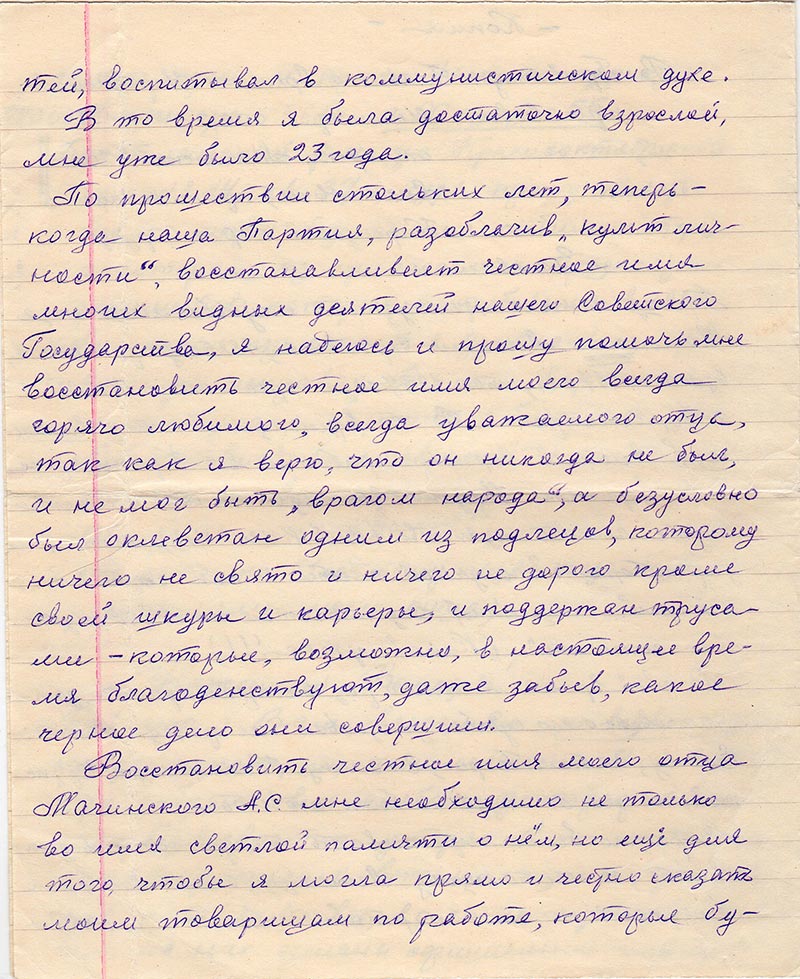 тей, воспитывал в коммунистическом духе.
В то время я была достаточно взрослой,
мне уже было 23 года.
По прошествии стольких лет, теперь –
когда наша Партия, разоблачив „культ лич-
ности“, восстанавливает честное имя
многих видных деятелей нашего Советского
Государства, я надеюсь и прошу помочь мне
восстановить честное имя моего всегда
горячо любимого, всегда уважаемого отца,
так как я верю, что он никогда не был,
и не мог быть „врагом народа“, а безусловно
был оклевстан одним из подлецов, которому
ничего не свято и ничего не дорого кроме
своей шкуры и карьеры, и поддержан труса-
ми – которые, возможно, в настоящее вре-
мя благоденствуют, даже забыв, какое
черное дело они совершили.
Восстановить честное имя моего отца
Мачинского А.С. мне необходимо не только
во имя светлой памяти о нём, но ещё для
того чтобы я могла прямо и честно сказать
моим товарищам по работе, которые бу-